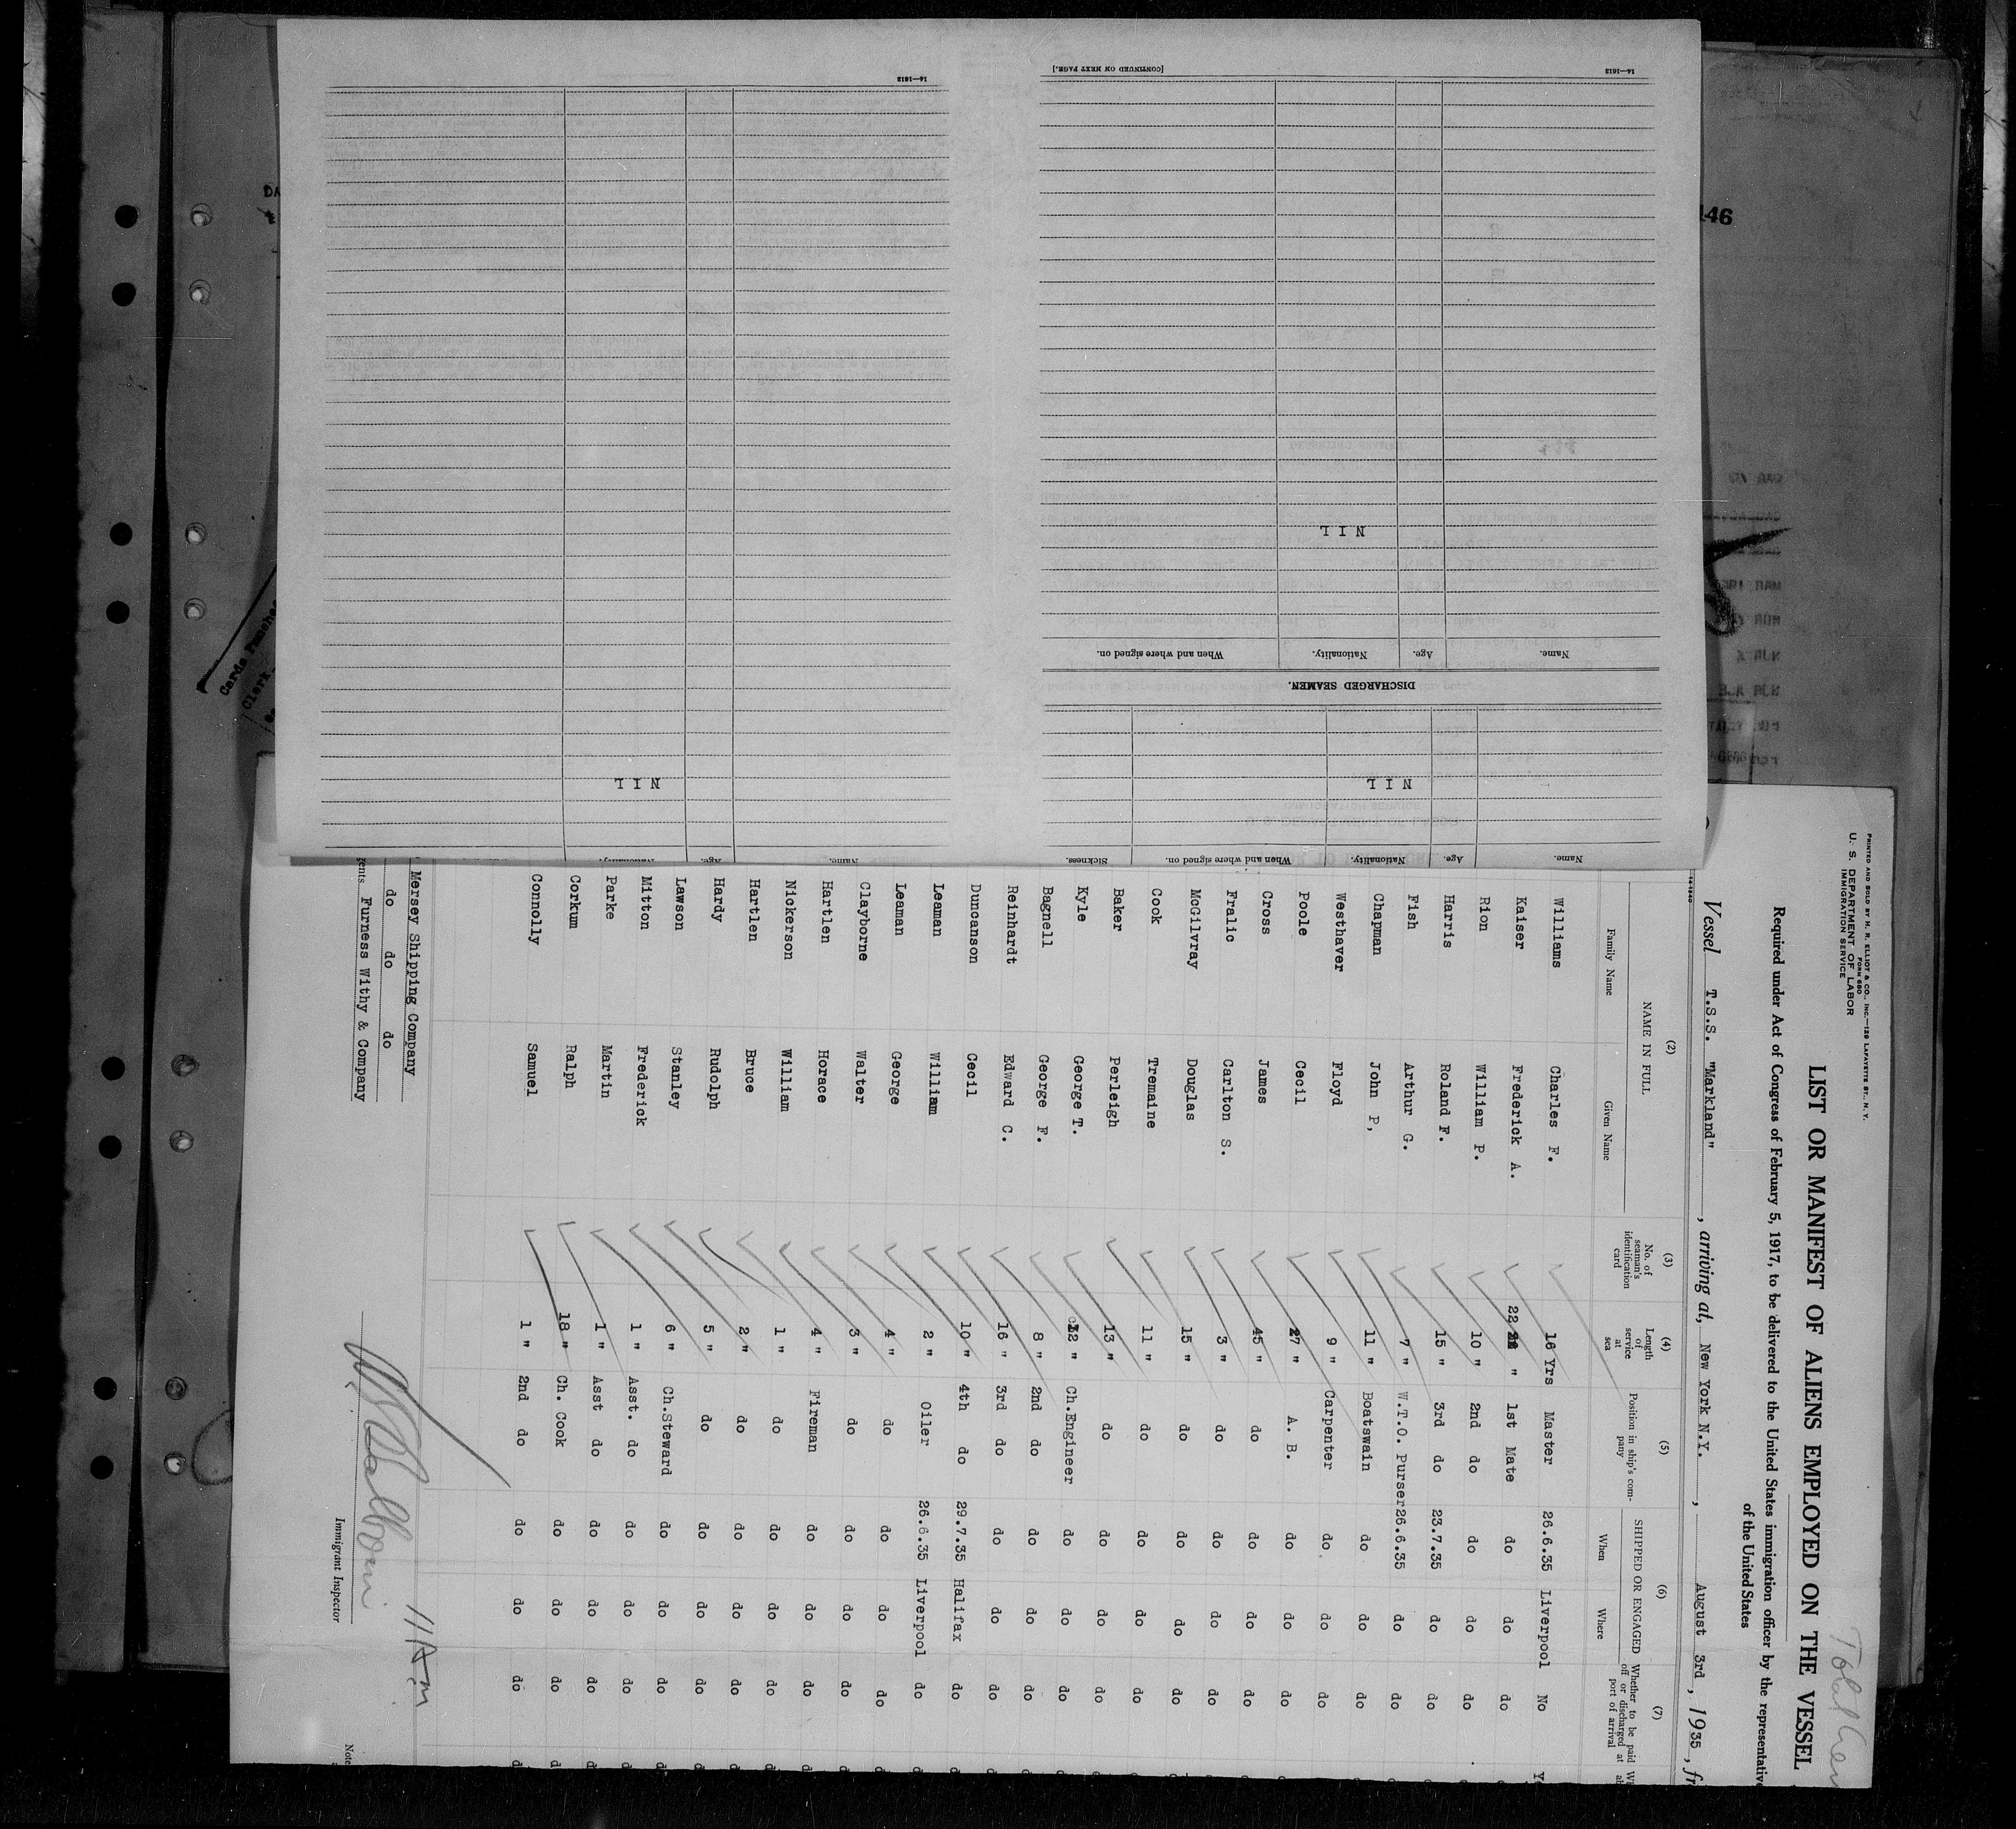 [CONTINUED ON NEXT PAGE.]
14—1613
14—1613
NIL
Name.
Age.
Nationality.
When and where signed on.
DISCHARGED SEAMEN.
NIL
NIL
Name. Age. Nationality. When and where signed on. Sickness.
Name. Age. Nationality.
146
PRINTED AND SOLD BY H. R. ELLIOT & CO., INC.—129 LAFAYETTE ST., N. Y.
FORM 680
U. S. DEPARTMENT OF LABOR
IMMIGRATION SERVICE
LIST OR MANIFEST OF ALIENS EMPLOYED ON THE VESSEL
Required under Act of Congress of February 5, 1917, to be delivered to the United States immigration officer by the representative
of the United States
Vessel T.S.S. "Markland", arriving at, New York N.Y., August 3rd, 1935, fr
(2) (3) (4) (5) (6) (7)
NAME IN FULL
Family Name Given Name
No. of seaman's identification card
Length of service at sea
Position in ship's company
SHIPPED OR ENGAGED
When Where
Whether to be paid off or discharged at port of arrival
Williams Charles F. 16 Yrs Master 26.6.35 Liverpool No
Kaiser Frederick A. 22 " 1st Mate do do do
Rion William P. 10 " 2nd do do do do
Harris Roland F. 15 " 3rd do 23.7.35 do do
Fish Arthur G. 7 " W.T.O. Purser 26.6.35 do do
Chapman John P, 11 " Boatswain do do do
Westhaver Floyd 9 " Carpenter do do do
Poole Cecil 27 " A. B. do do do
Cross James 45 " do do do do
Fralic Carlton S. 3 " do do do do
McGilvray Douglas 15 " do do do do
Cook Tremaine 11 " do do do do
Baker Perleigh 13 " do do do do
Kyle George T. 32 " Ch.Engineer do do do
Bagnell George F. 8 " 2nd do do do do
Reinhardt Edward C. 16 " 3rd do do do do
Duncanson Cecil 10 " 4th do 29.7.35 Halifax do
Leaman William 2 " Oiler 26.6.35 Liverpool do
Leaman George 4 " do do do do
Clayborne Walter 3 " do do do do
Hartlen Horace 4 " Fireman do do do
Nickerson William 1 " do do do do
Hartlen Bruce 2 " do do do do
Hardy Rudolph 5 " do do do do
Lawson Stanley 6 " Ch.Steward do do do
Mitton Frederick 1 " Asst. do do do do
Parke Martin 1 " Asst do do do do
Corkum Ralph 18 " Ch. Cook do do do
Connolly Samuel 1 " 2nd do do do do
Mersey Shipping Company
do do do
Furness Withy & Company
11 Am
Immigrant Inspector
Note